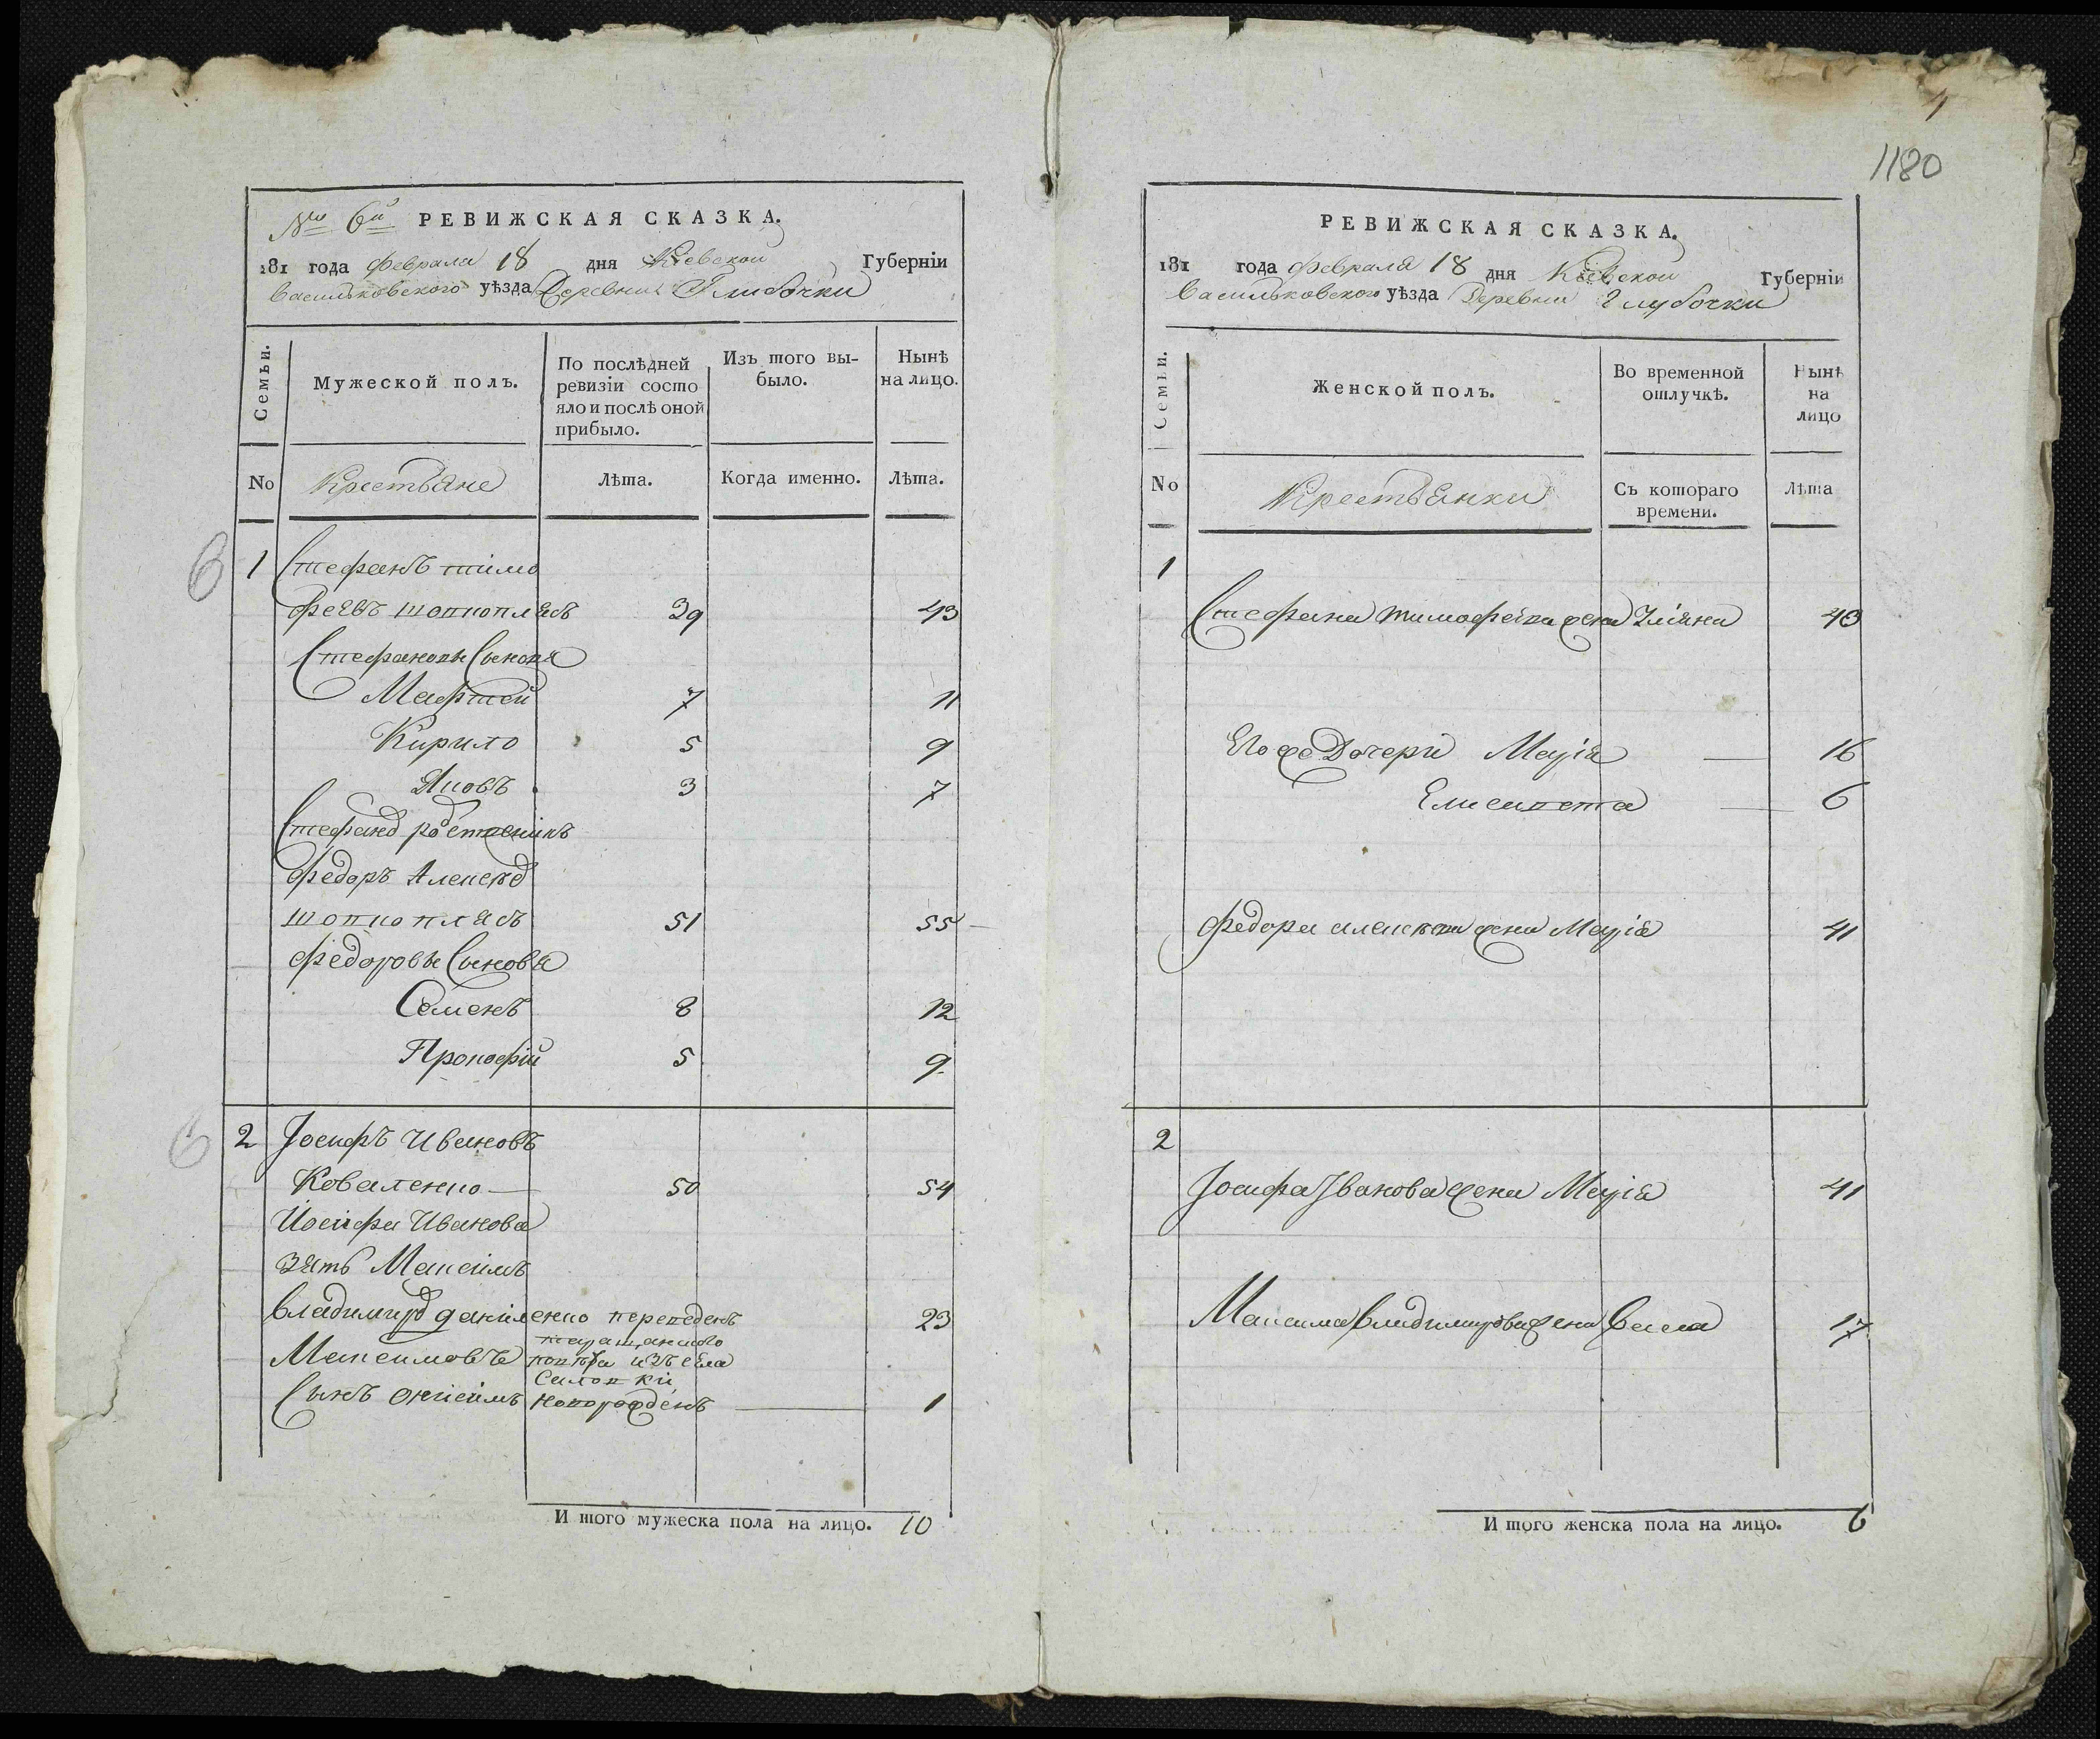 № 6й РЕВИЖСКАЯ СКАЗКА.
181 года февраля 18 дня Киевской Губерніи
Васильковского уѣзда Деревни Глибочки
Семьи.
Мужеской полъ.
По послѣдней
ревизіи состо
яло и послѣ оной
прибыло.
Изъ того вы-
было.
Нынѣ
на лицо.
No
Крестьяне
Лѣта.
Когда именно.
Лѣта.
1 Стефанъ тимо
феевъ 39 43
Стефановы Сыновя
Мафтей 7 11
Кирило 5 9
Яковъ 3 7
Стефана
Федоръ Алексѣев
51 55
Федоровы Сыновя
Семенъ 8 12
Прокофій 5 9
2 Іосифъ Ивановъ
Коваленко 50 54
Йосифа Иванова
зять Максимъ
Владимиров даниленко переведенъ 23
таращанского
Максимовъ повѣта изъ села
Сынъ новорожденъ 1
И того мужеска пола на лицо. 10
1180
РЕВИЖСКАЯ СКАЗКА.
181 года февраля 18 дня Киевской Губерніи
Васильковского уѣзда Деревни Глубочки
Семьи.
Женской полъ.
Во временной
отлучкѣ.
Нынѣ
на
лицо
No
Крестьянки
Съ котораго
времени.
Лѣта
1
Стефана тимофеива жена Уліяна 40
Его же Дочери Марія 16
Елисавета 6
Федора алексѣева жена Марія 41
2
Іосифа Іванова жена Марія 41
Максима Владимирова жена 17
И того женска пола на лицо. 6